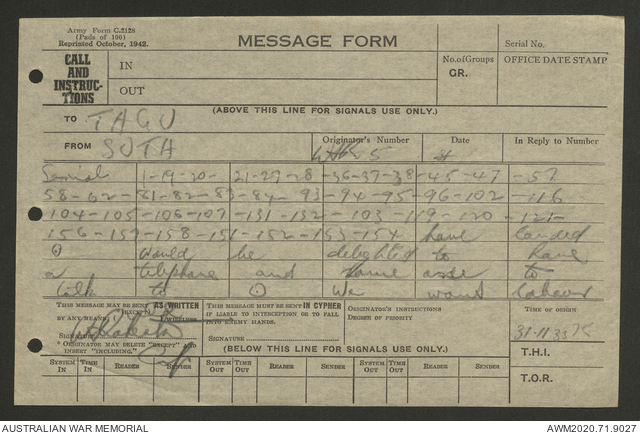 Army Form C.2128
(Pads of 100)
Reprinted October, 1942.
MESSAGE FORM
Serial No.
CALL
AND
INSTRUC-
TIONS
IN
OUT
No. of Groups
GR.
OFFICE DATE STAMP
(ABOVE THIS LINE FOR SIGNALS USE ONLY.)
TO TAGU
FROM SUTA
Originator's Number
5
Date
In Reply to Number
Serial 1-19-20- 21-27-28 -36-37-38 -45-47 -57
58-62- 81-82-83 -84- 93 -94-95 -96-102 -116
104-105 -106-107 -131-132 -103 -119-120 -121-
156-157 -158-151 -152-153-154 have landed
would be delighted to have
a telephone and some one to
talk to We want
THIS MESSAGE MAY BE SENT AS WRITTEN
BY ANY MEANS
SIGNATURE
* ORIGINATOR MAY DELETE "EXCEPT" AND
INSERT "INCLUDING."
THIS MESSAGE MUST BE SENT IN CYPHER
IF LIABLE TO INTERCEPTION OR TO FALL
INTO ENEMY HANDS.
SIGNATURE
ORIGINATOR'S INSTRUCTIONS
DEGREE OF PRIORITY
TIME OF ORIGIN
(BELOW THIS LINE FOR SIGNALS USE ONLY.)
T.H.I.
T.O.R.
SYSTEM IN TIME IN READER SENDER SYSTEM OUT TIME OUT READER SENDER SYSTEM OUT TIME OUT READER SENDER
AUSTRALIAN WAR MEMORIAL
AWM2020.71.9027